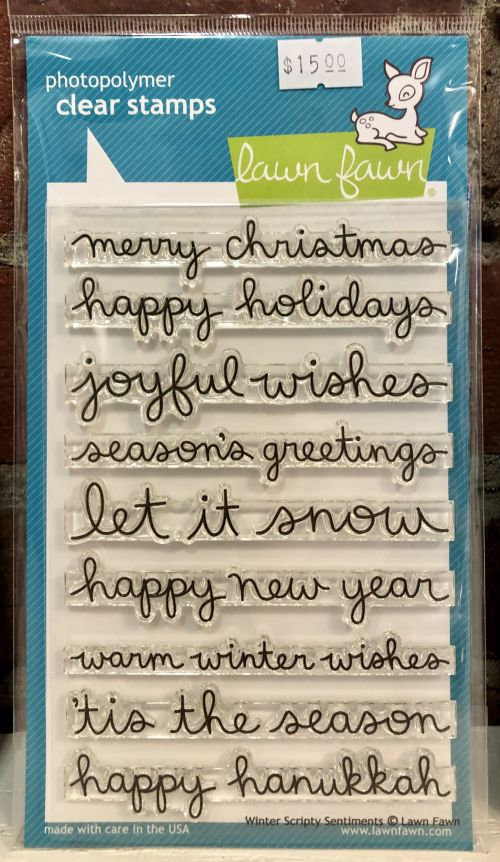 photopolymer
clear stamps
$15.00
lawn fawn®
merry christmas
happy holidays
joyful wishes
season's greetings
let it snow
happy new year
warm winter wishes
'tis the season
happy hanukkah
Winter Scripty Sentiments © Lawn Fawn
made with care in the USA
www.lawnfawn.com